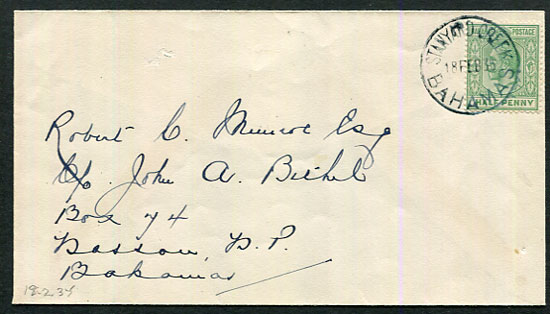 STANYARD CREEK
18 FEB 35
BAHAMAS
POSTAGE
HALF PENNY
Robert C. Munroe Esq
C/o John A. Bethel
Box 74
Nassau, N.P.
Bahamas
18-2-35